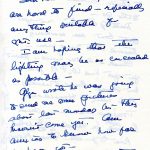 are hard to find - especially
anything suitable of
this use -
I am hoping that the
lighting may be as concealed
as possible -
You wrote he was going
to send me some pictures
about last Monday as - they
haven't come yet. I am
anxious to know how far